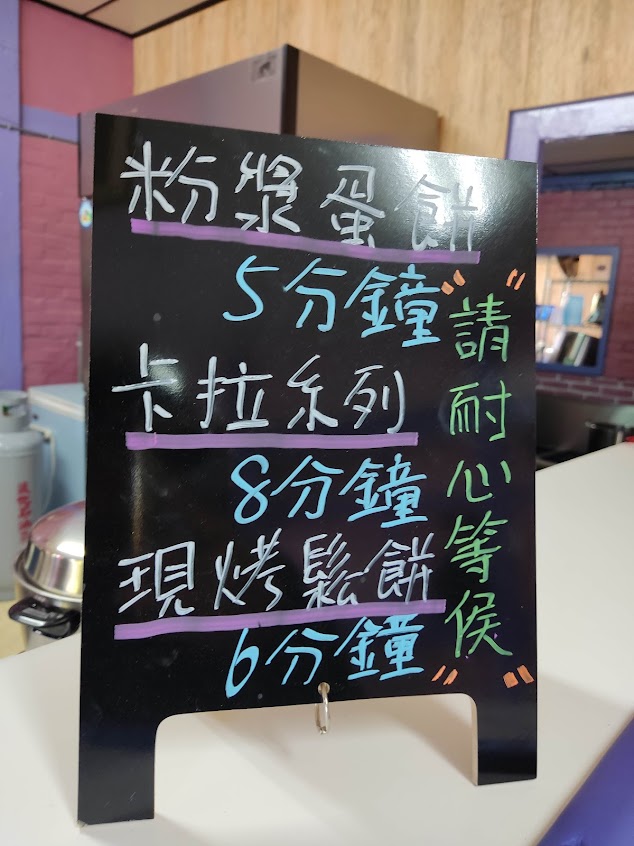 粉漿蛋餅
5分鐘
卡拉系列
8分鐘
現烤鬆餅
6分鐘
"請耐心等候"